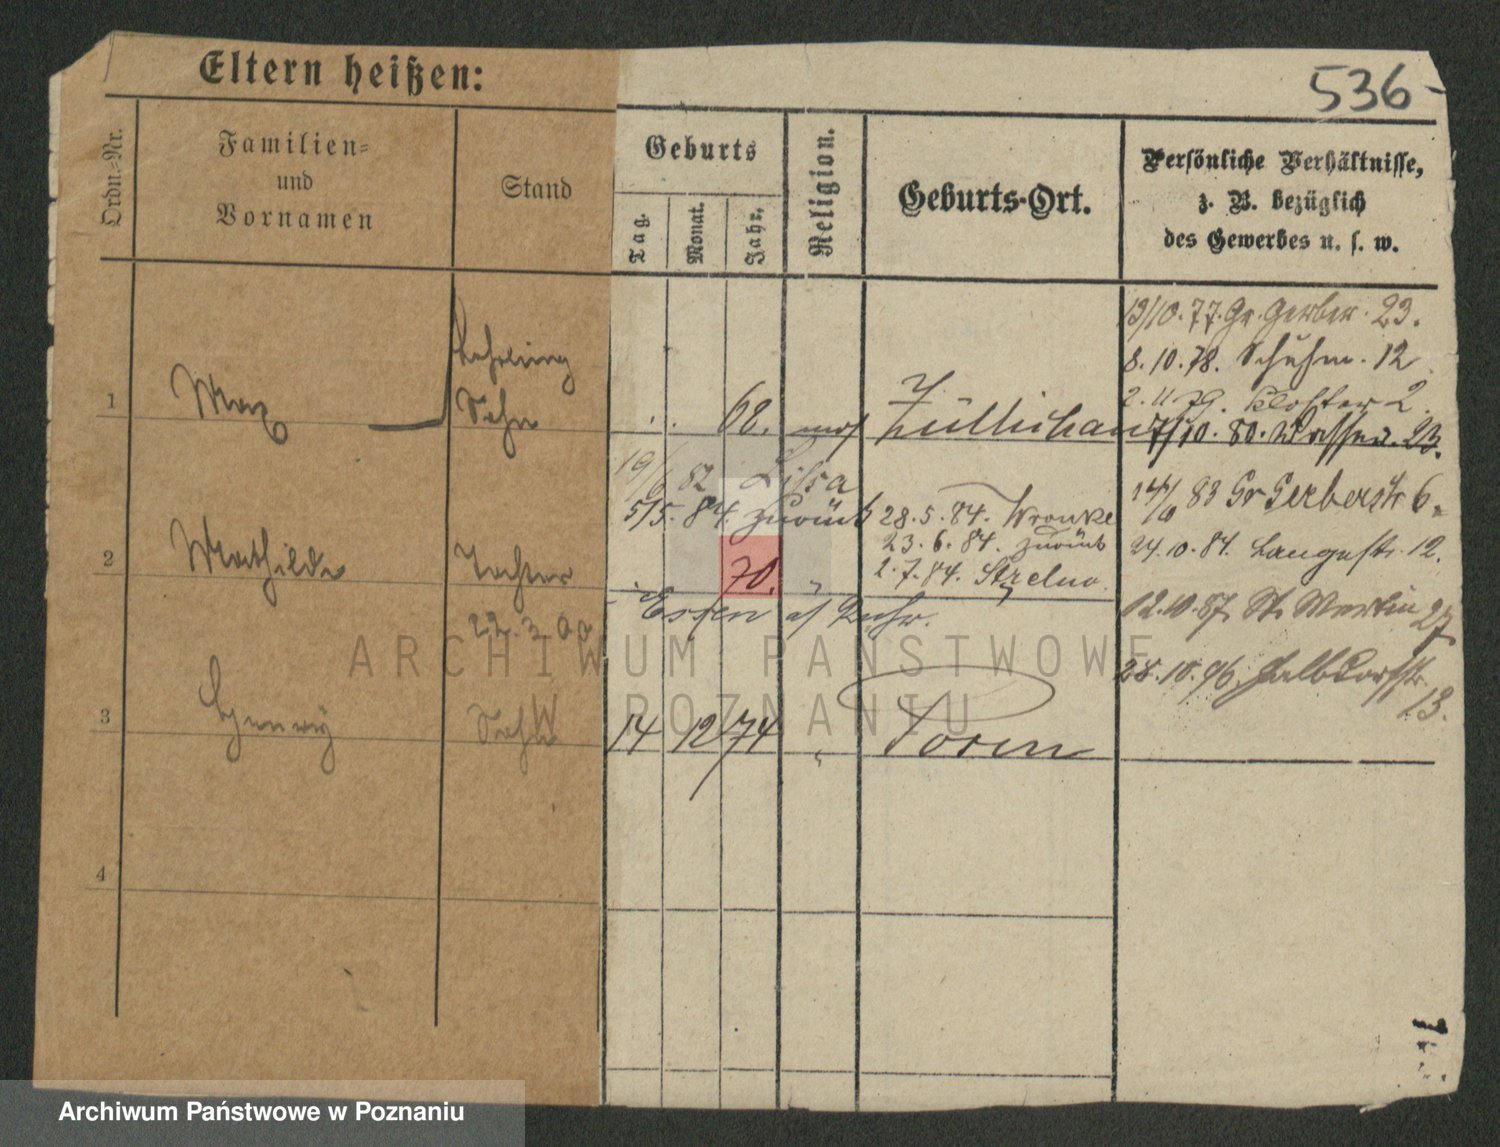 Eltern heißen:
536
Ordn.-Nr.
Familien-
und
Vornamen
Stand
Geburts
Tag.
Monat.
Jahr.
Religion.
Geburts-Ort.
Persönliche Verhältnisse,
z. B. bezüglich
des Gewerbes u. s. w.
13/10. 77. Gr. Gerber. 23.
8. 10. 78. Schuhm. 12
2. 11 79. Kloster 2.
7/10. 80. Wasser. 23.
1 Max Lehrling
Sohn 68. mos Züllichau
19/6 82 Lissa
5/5. 84. zurück
28. 5. 84. Wronke
23. 6. 84. zurück
2. 7. 84. Strelno
14/6 83 Gr Gerberstr 6.
24. 10. 84. Langestr. 12.
2 Mathilde Tochter 70. "
Essen a/ Ruhr.
22. 3 00
12. 10. 87. St. Martin 27
28. 10. 96. Halbdorfstr.
13.
3 Henry Sohn 14 12 74 " Posen
4
ARCHIWUM PAŃSTWOWE
W POZNANIU
Archiwum Państwowe w Poznaniu